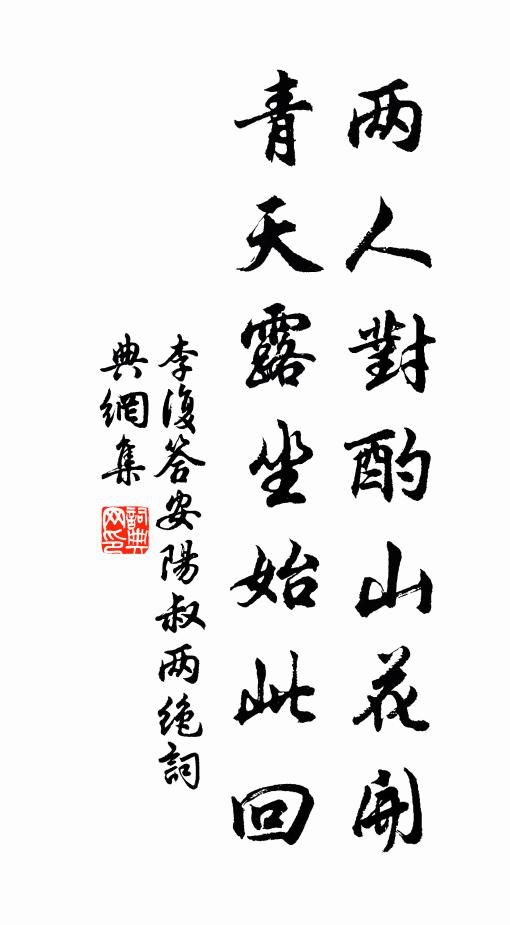 两人對酌山花開
青天露坐始此回
李復答安陽叔两绝詞
典網集
詞典
网印